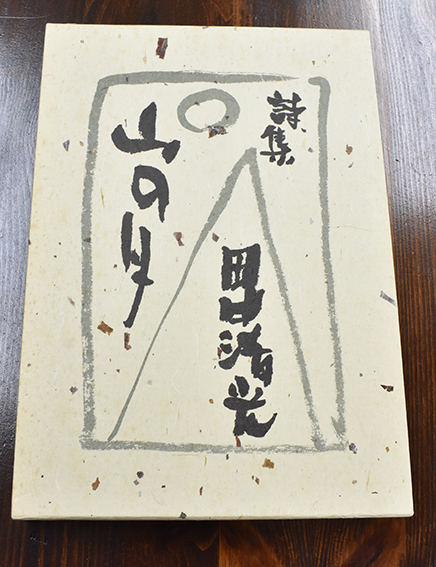 詩集
山の月
田中清光